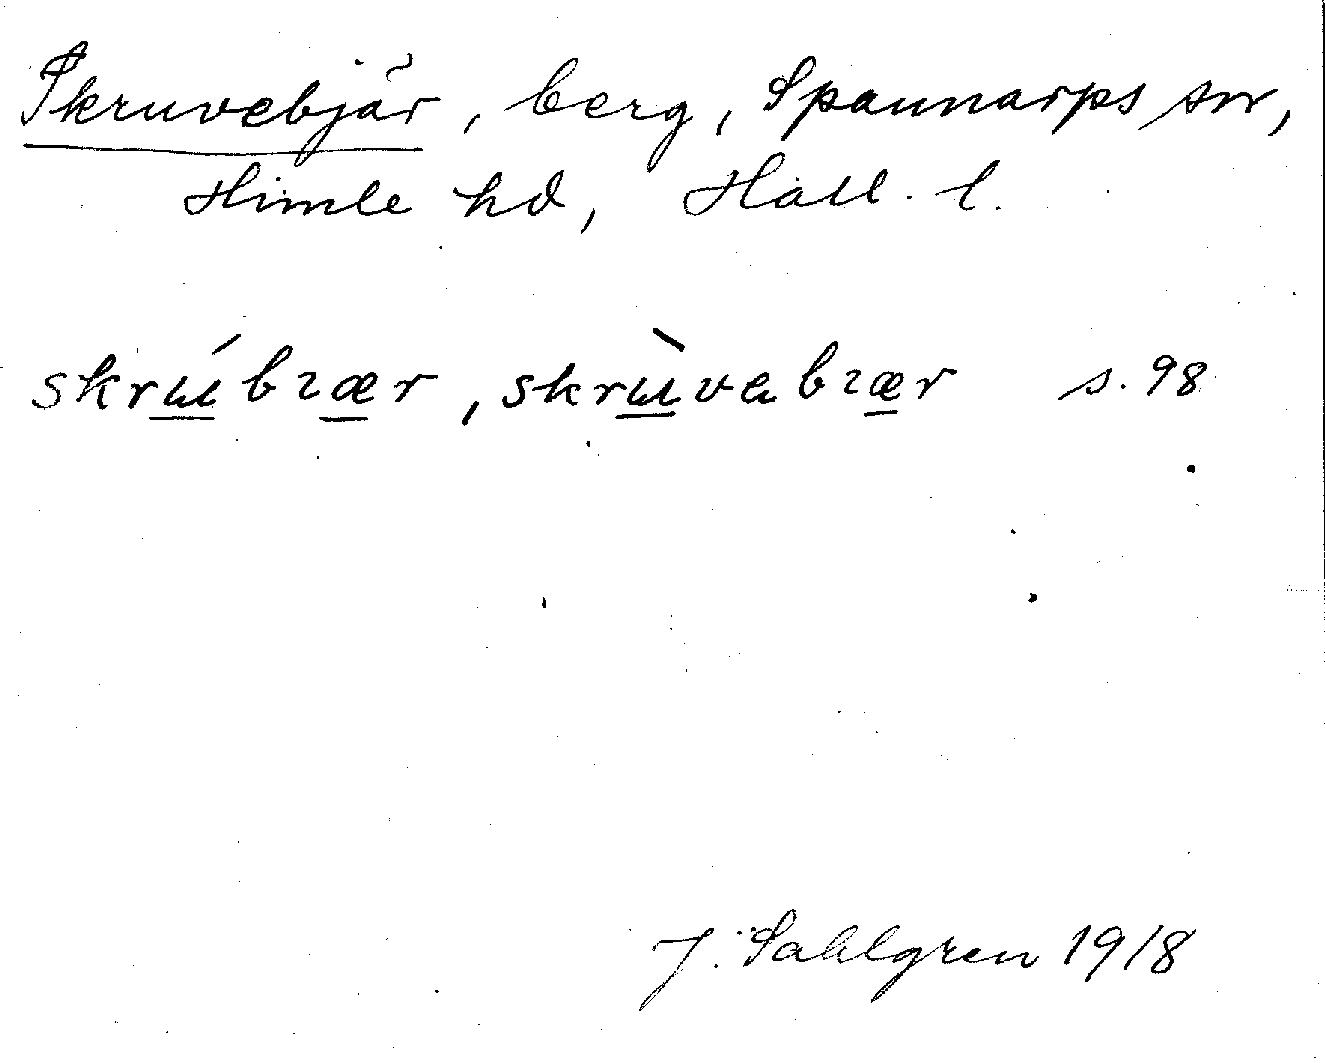 Skruvebjär, berg, Spannarps sn,
Himle hd, Hall. l.
skrúbɿær, skrùvabɿær s. 98
J. Sahlgren 1918